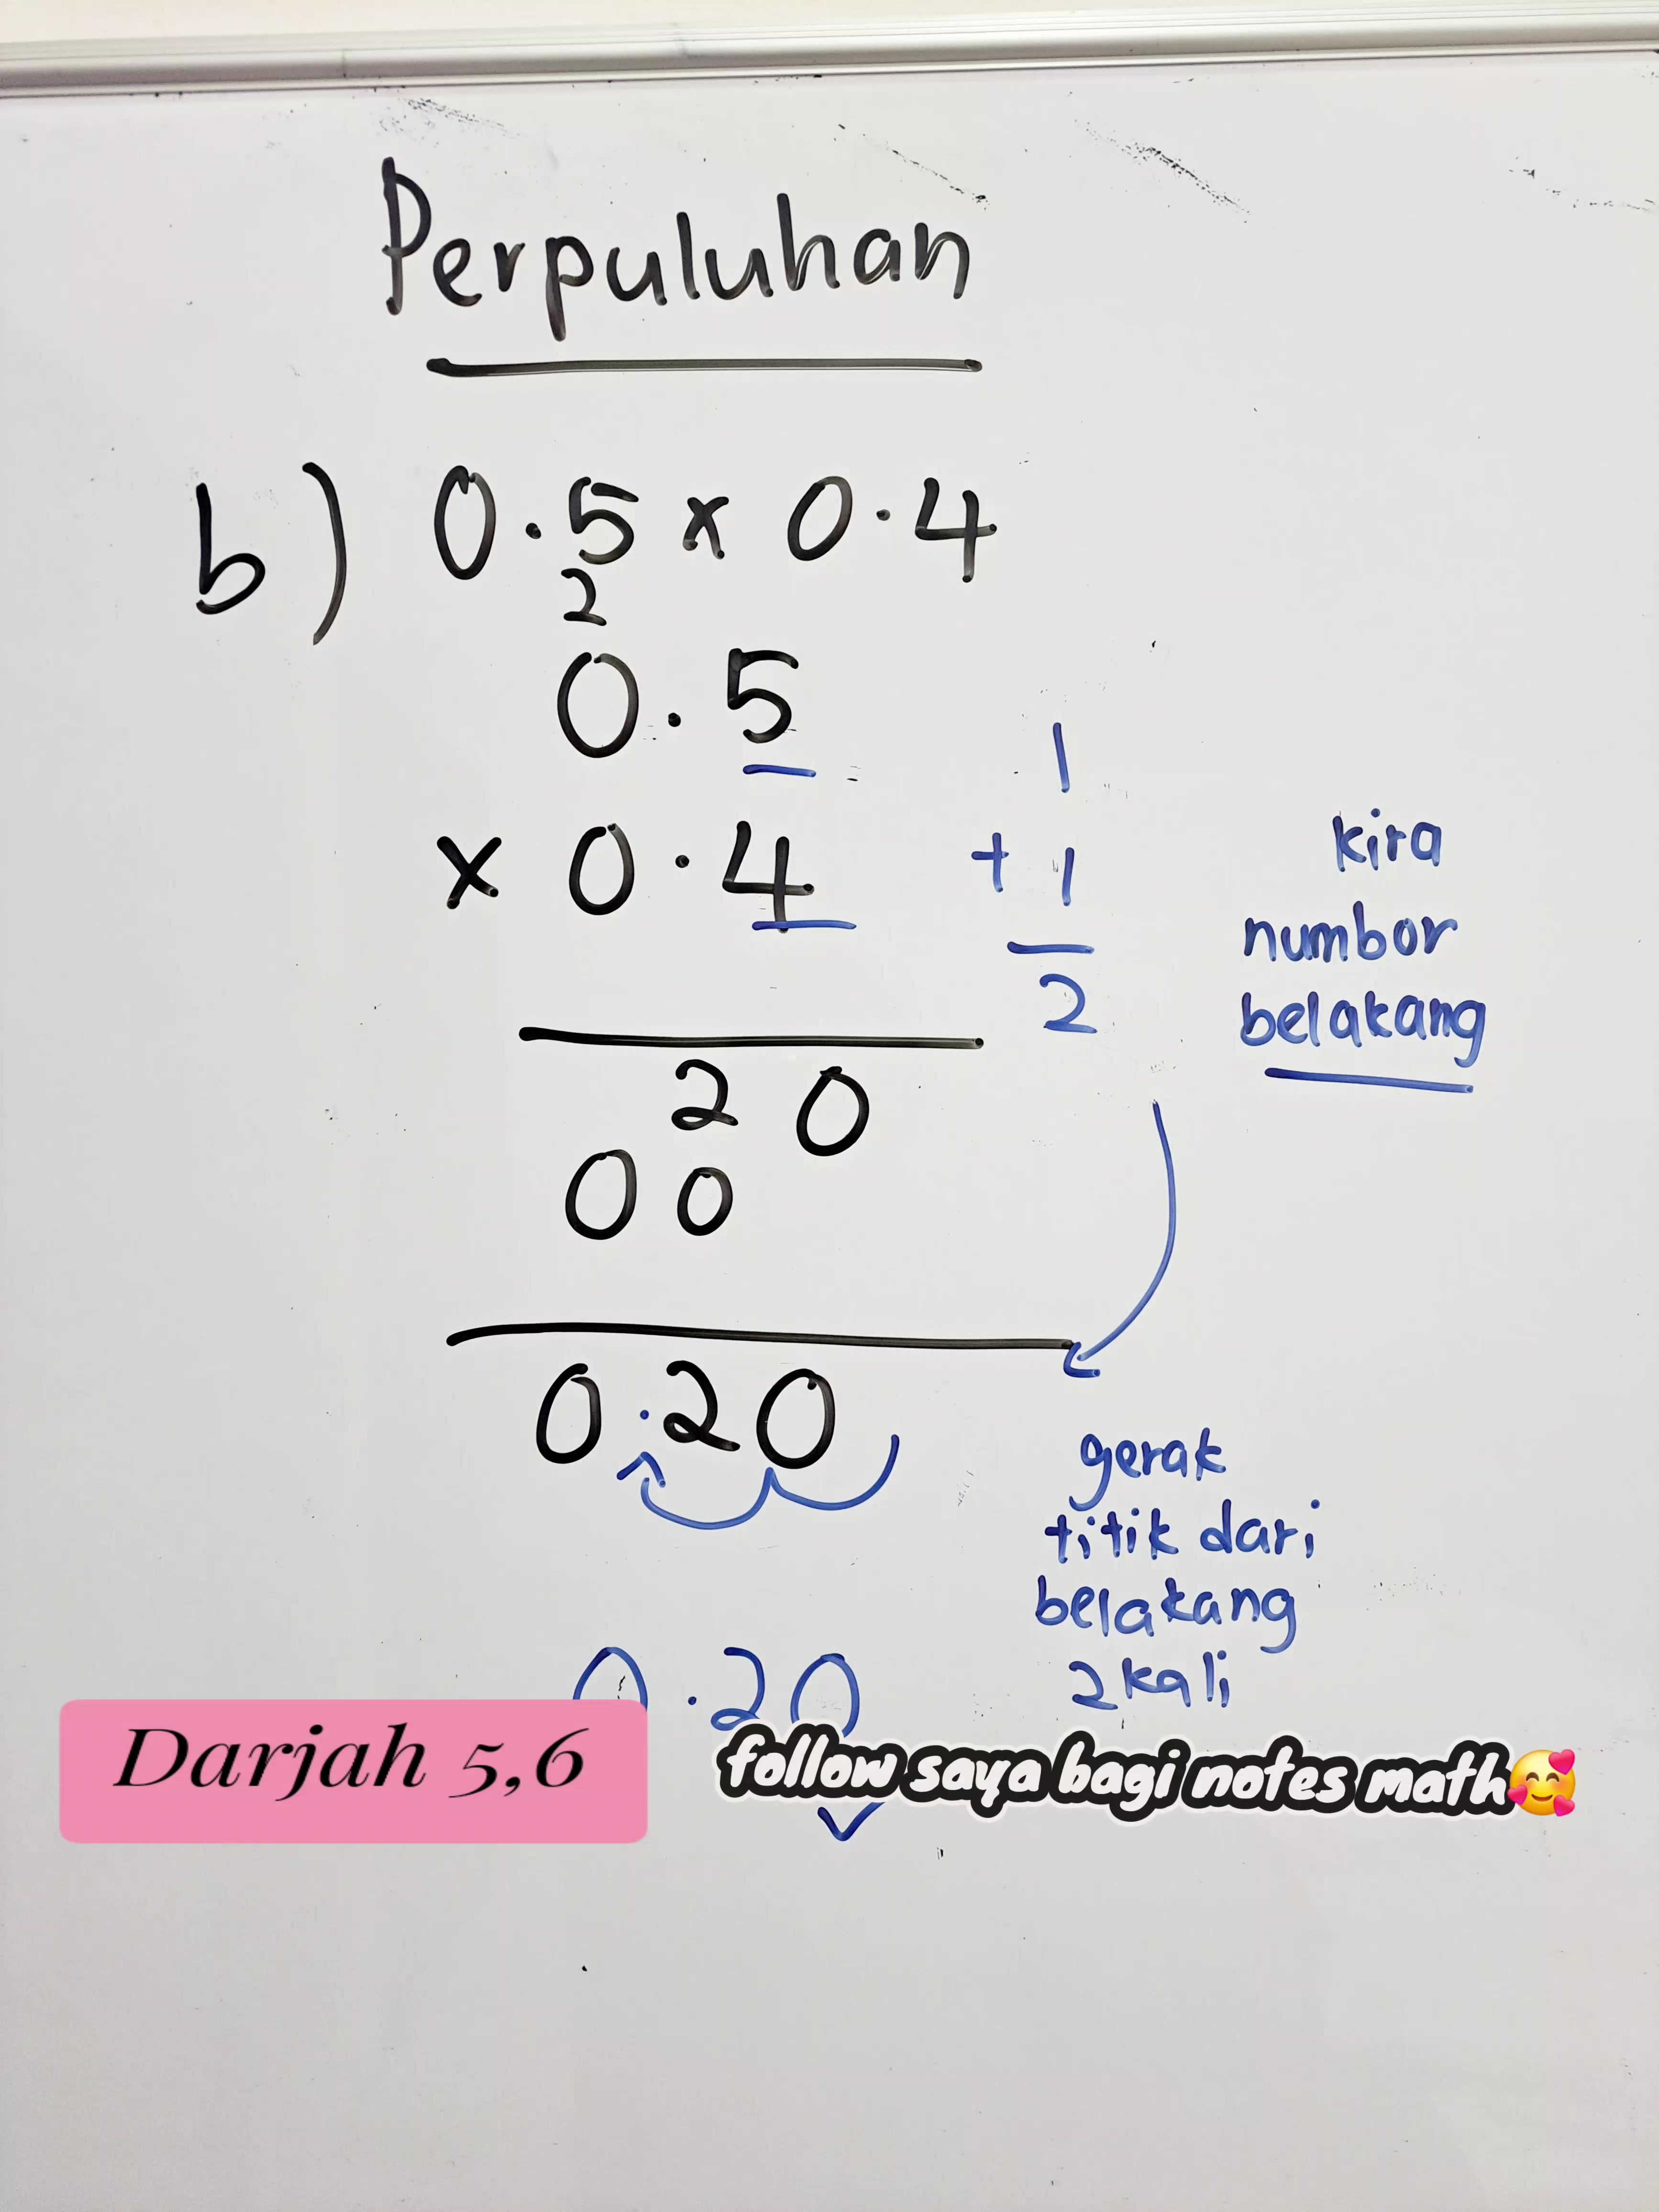 Perpuluhan
b) 0.5 x 0.4
2
0.5
x 0.4
1
+ 1
2
kira
numbor
belakang
20
00
0.20
gerak
titik dari
belakang
2 kali
0.20
Darjah 5,6
follow saya bagi notes math🥰